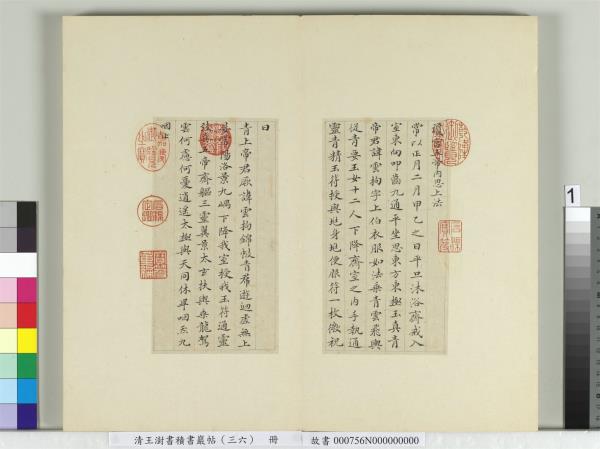 瓊宮五帝內思上法
常以正月二月甲乙之日平旦沐浴齋戒入
室東向叩齒九通平坐思東方東極玉真青
帝君諱雲拘字上伯衣服如法乘青雲飛輿
從青要玉女十二人下降齋室之內手執通
靈青精玉符授與地身地便服符一枚微祝
曰
青上帝君厥諱雲拘錦帔青帬遊迴虛無上
晏常陽洛景九嵎下降我室授我玉符通靈
致真五帝齋軀三靈翼景太玄扶輿乘龍駕
雲何慮何憂逍遙太極與天同休畢咽炁九
咽止
1
清王澍書積書巖帖（三六） 冊
故書 000756N000000000